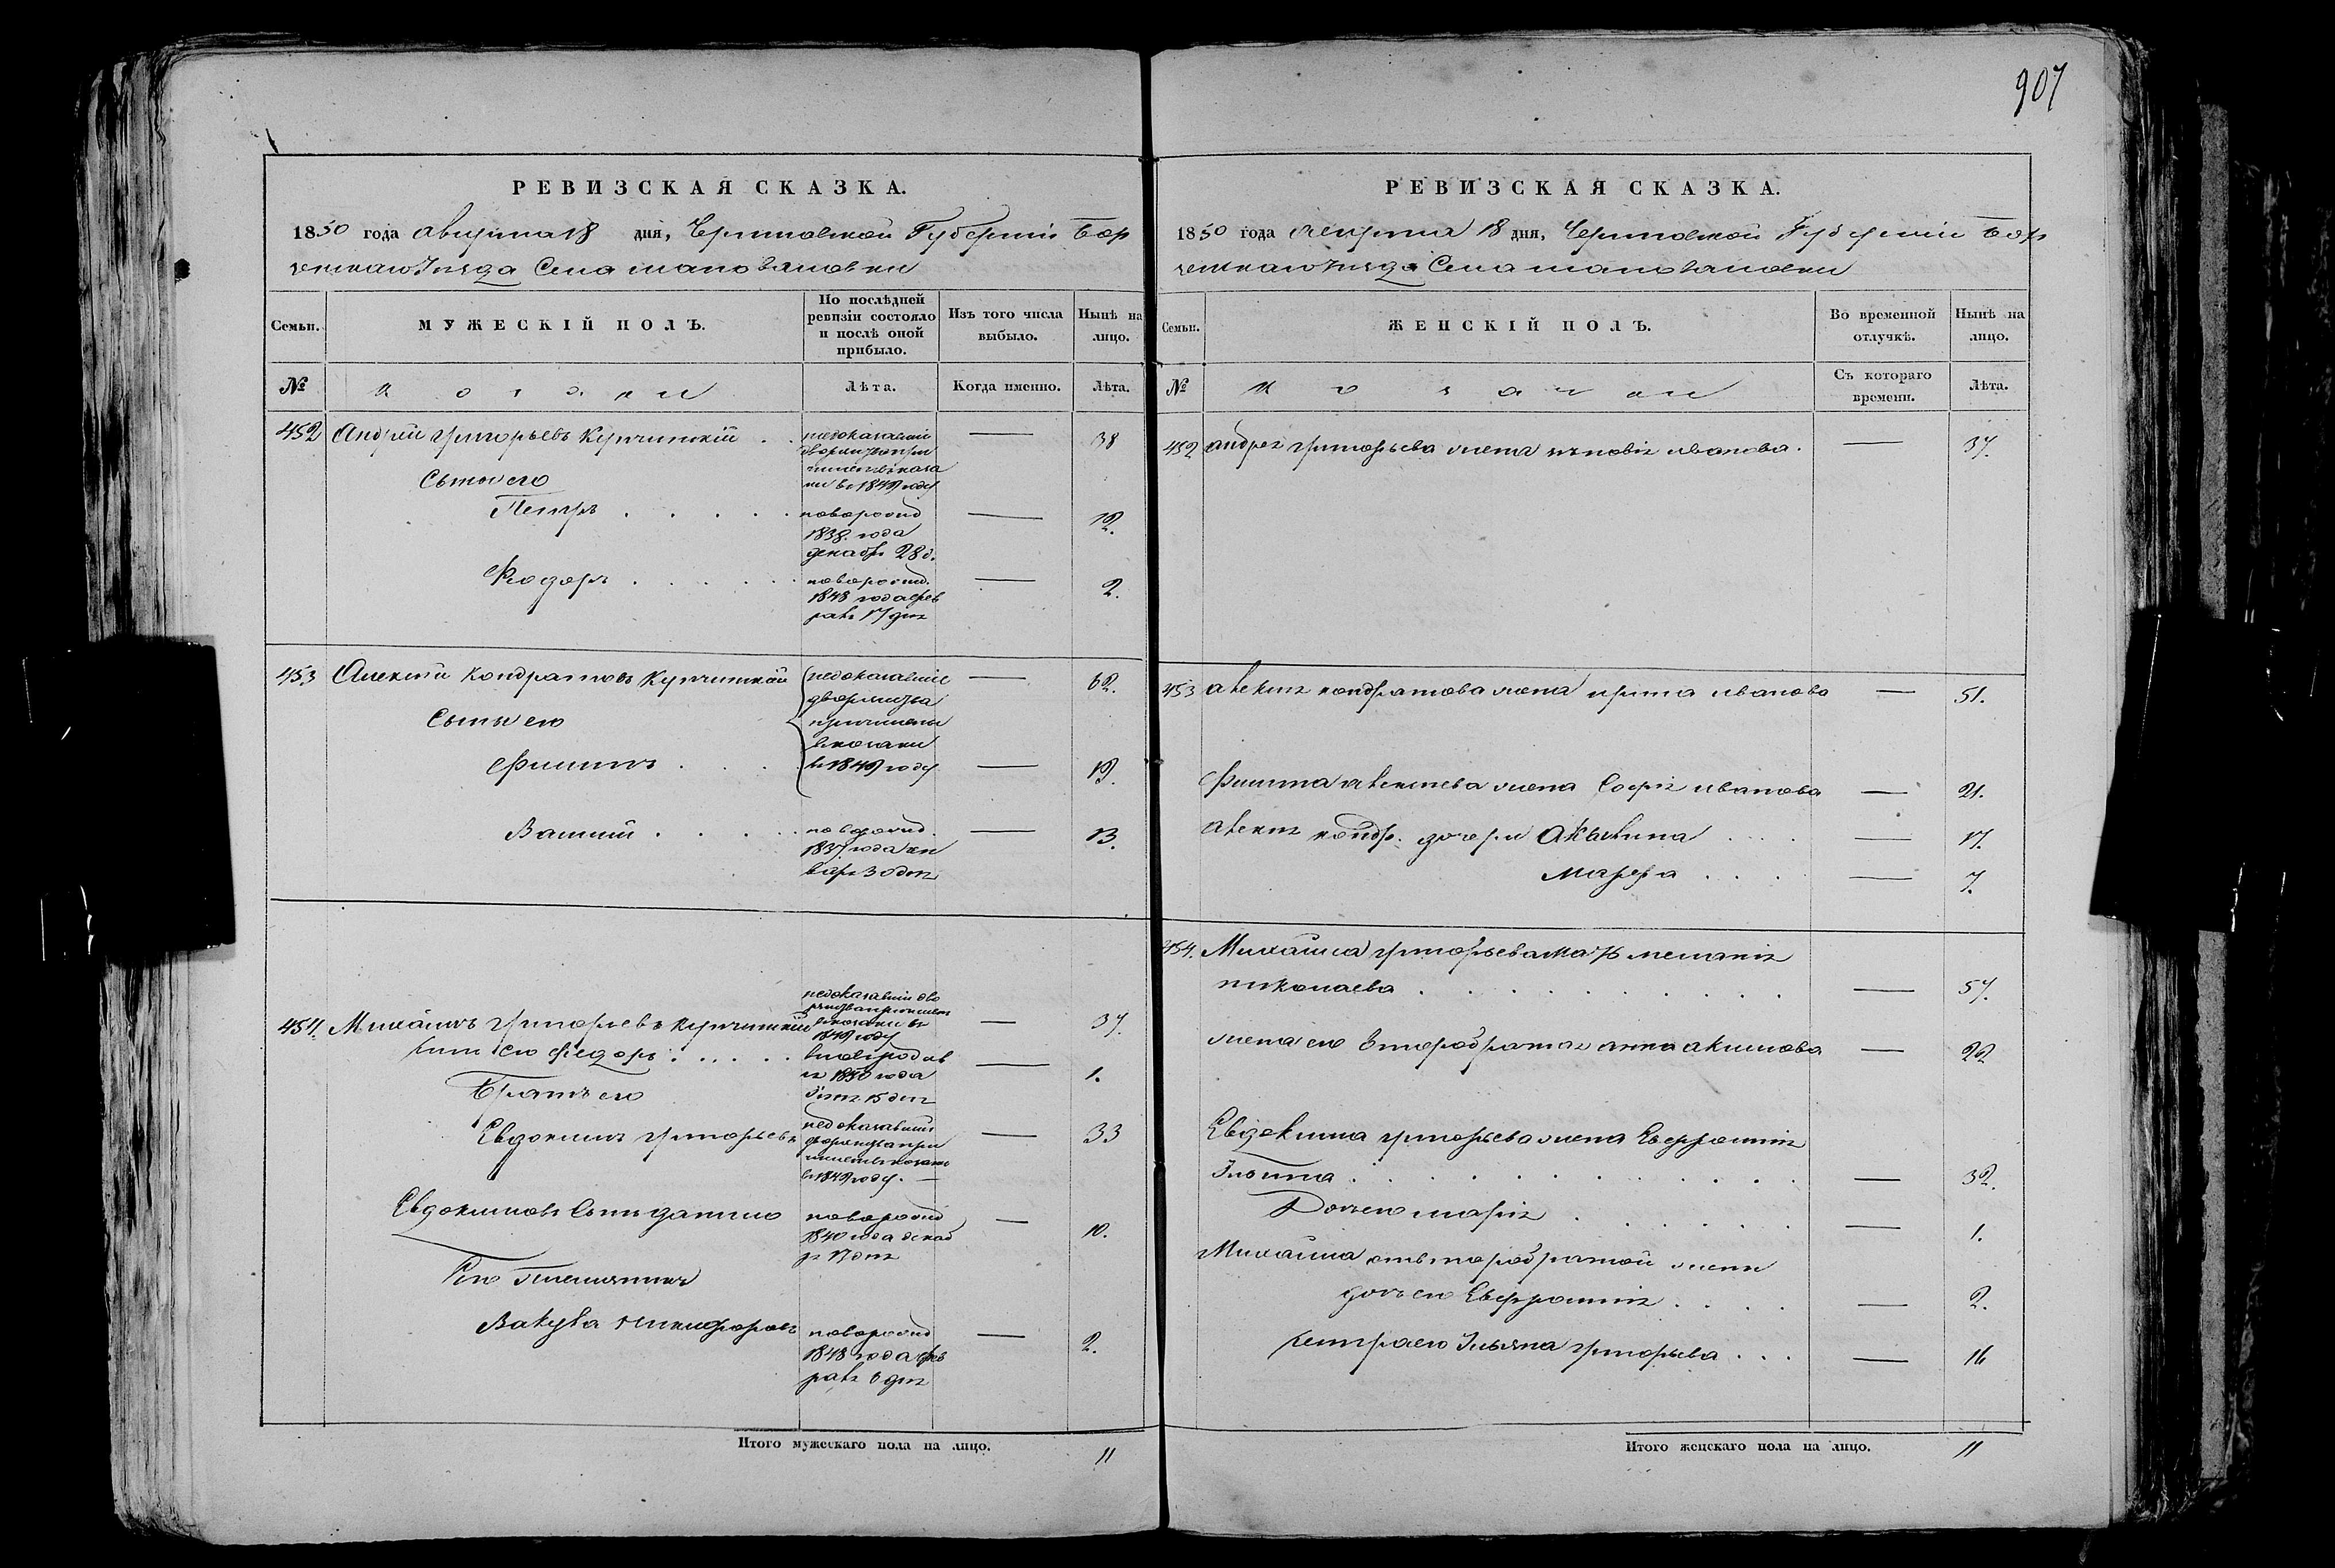 907
РЕВИЗСКАЯ СКАЗКА.
1850 года августа 18 дня, Черниговской Губернии Бор
зенскаго Уезда Села
Семьи.
МУЖЕСКІЙ ПОЛЪ.
По послѣдней ревизіи состояло и послѣ оной прибыло.
Изъ того числа выбыло.
Нынѣ на лицо.
№
козаки
Лѣта.
Когда именно.
Лѣта.
452 Андрей григорьевъ Купчинскій . . недоказавшій — 38
дворянства при
численъ в коза
ки в 1842 году
Сыны его
Петръ . . . . . новорожд — 12.
1838. года
декабр 28 д.
Федоръ . . . . . новорожд. — 2.
1848 года фев
раля 17 дня
453 Алексей Кондратовъ Купчинскій недоказавшіе — 62.
дворянства
причислены
в козаки
в 1842 году
Сыны его
Филипъ . . . — 19.
Василий . . . . новорожд. — 13.
1837. года ян
варя 30 дня
454. Михаилъ григорьевъ Купчинскій недоказавшій дво — 37.
рянства причислен
в козаки в
1842 году
сын его Федоръ . . . . . — 1.
1850 года
15 дня
Братъ его
Евдокимъ григорьевъ недоказавший — 33
дворянства при
численъ в козаки
в 1842 году. —
Евдокимовъ Сынъ данило новорожд — 10.
1840 года декаб
ря 17 дня
Его Племянникъ
Вакула никифоровъ новорожд — 2.
1848 года фев
раля 6 дня
Итого мужескаго пола на лицо. 11
РЕВИЗСКАЯ СКАЗКА.
1850 года августа 18 дня, Черниговской Губернии Бор
зенскаго Уезда Села
Семьи.
ЖЕНСКІЙ ПОЛЪ.
Во временной отлучкѣ.
Нынѣ на лицо.
№
козачки
Съ котораго времени.
Лѣта.
452 андрея григорьева жена иванова. — 37.
453 алексея кондратова жена ирина иванова — 51.
Филипа алексеева жена Софія иванова — 21.
алексея кондр. дочери Акылина . . . — 17.
марфа . . . — 7.
454. Михайла григорьева мать меланія
николаева . . . . . . . . . — 57.
жена его второбрачная анна акимова — 22
Евдокима григорьева жена Евфросинія
Ильина . . . . . . . . . — 32.
Дочь его марія . . . . . . — 1.
Михаила от второбрачной жены
дочь его Евфросинія . . . . — 2.
сестра его Ульяна григорьева . . . — 16
Итого женскаго пола на лицо. 11